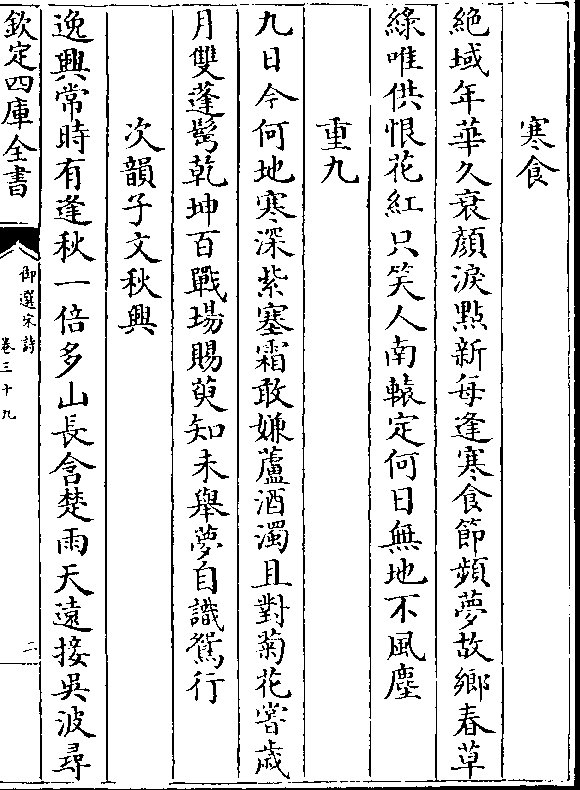 寒食
絶域年華久衰顔淚點新每逢寒食節頻夢故鄉春草
綠唯供恨花紅只笑人南轅定何日無地不風塵
重九
九日今何地寒深紫塞霜敢嫌蘆酒濁且對菊花嘗歲
月雙蓬鬂乾坤百戰場賜萸知未舉夢自識鴛行
次韻子文秋興
逸興常時有逢秋一倍多山長含楚雨天遠接吳波尋
欽定四庫全書
御選宋詩
卷三十九
二